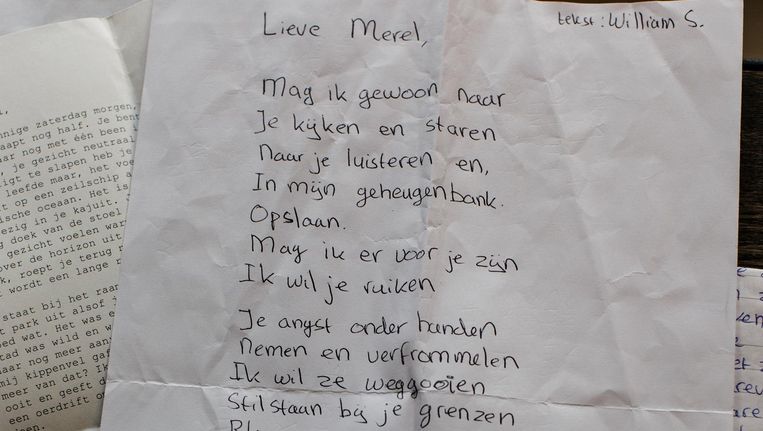 Lieve Merel,
tekst: William S.
Mag ik gewoon naar
Je kijken en staren
Naar je luisteren en,
In mijn geheugenbank.
Opslaan.
Mag ik er voor je zijn
Ik wil je ruiken
Je angst onder handen
Nemen en verfrommelen
Ik wil ze weggooien
Stilstaan bij je grenzen
nnige zaterdag morgen,
aapt nog half. Je bent
aar nog met één been i
, je gezicht neutraal
ligt te slapen heb je
leefde maar, het voe
t op een zeilschip a
ische oceaan. Het is
ezig in je kajuit.
g doek van de stoel
gezicht voelen war
over de horizon uit
k, roept je terug n
t wordt een lange r
staat bij het raar
t park uit alsof j
oed wat. Het was e
tad was wild en w
aar nog meer aan
mij kippenvel gaf
meer van dat? Ik
ooit en geeft d
een oerdrift o